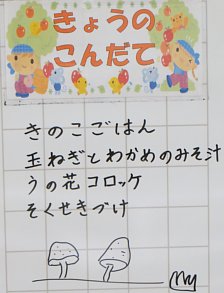 きょうの
こんだて
きのこごはん
玉ねぎとわかめのみそ汁
うの花コロッケ
そくせきづけ